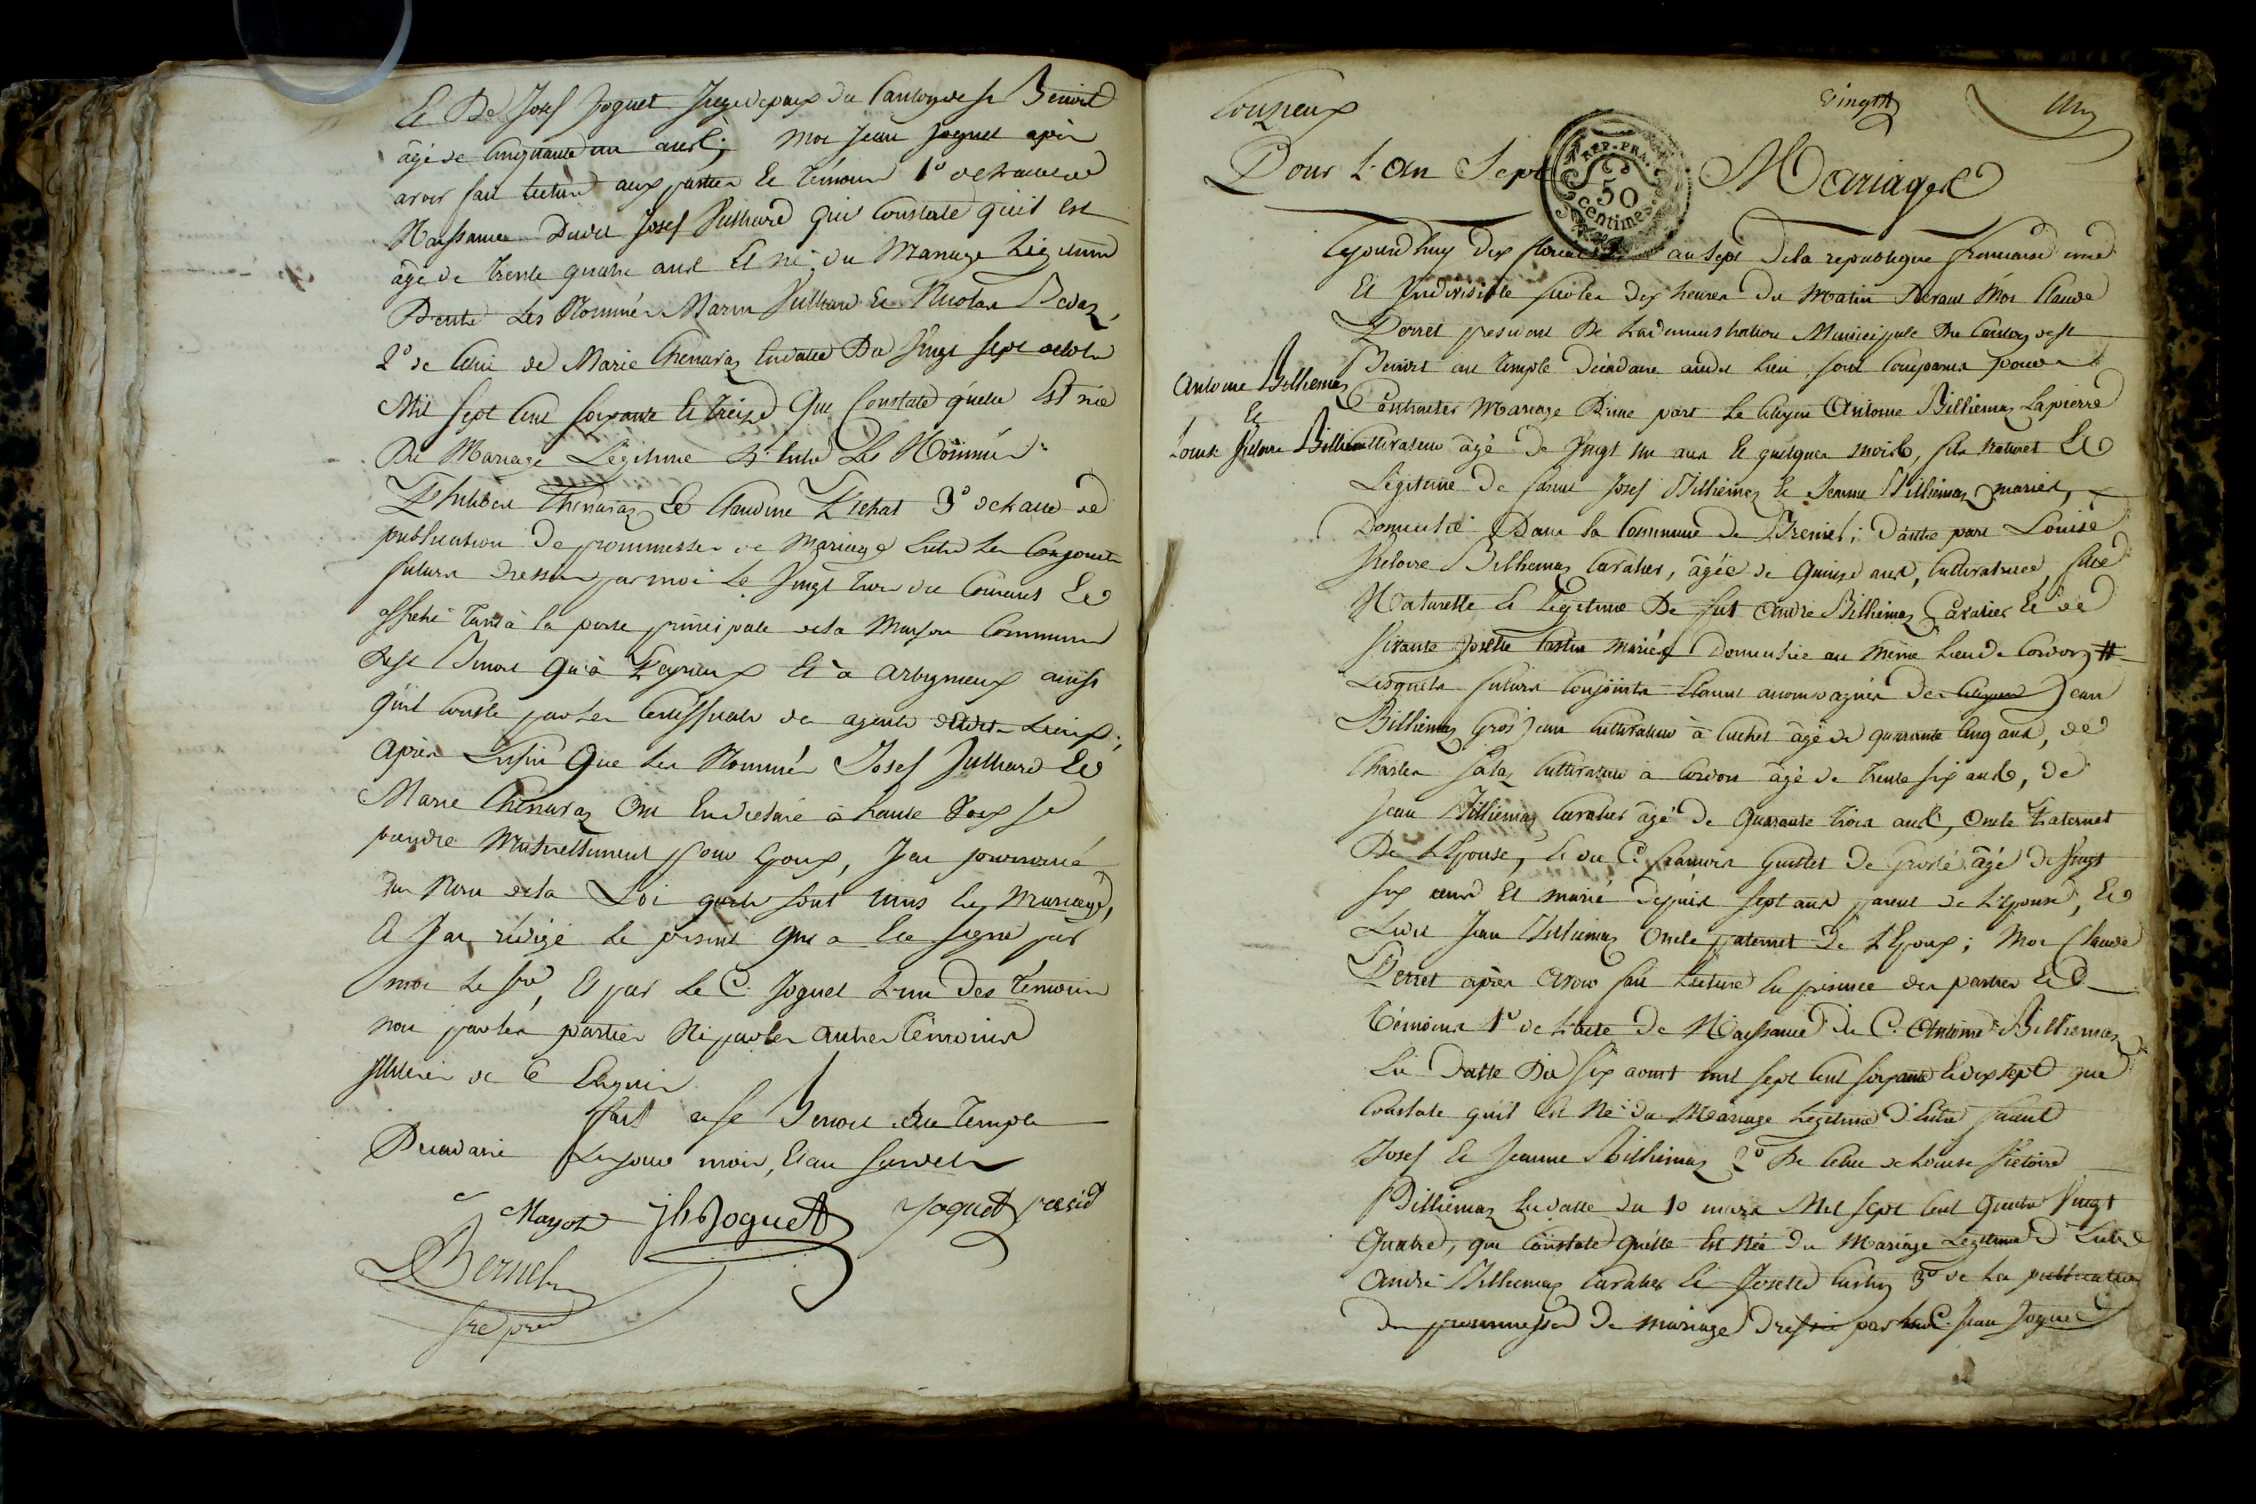 Et De Josef Joguet Juge de paix du Canton de St Benoit
âgé de Cinquante un ans; Moi Jean Joguet après
avoir fait lecture aux parties et témoins 1° de l'acte de
Naissance Dudit Josef Julliard qui Constate qu'il est
âgé de trente quatre ans Et né du Mariage Légitime
D'entre Les Nommés Marin Julliard et Nicolas
2° de Celui de Marie Chenaraz En date Du Vingt Sept octobre
Mil Sept Cent Soixante Et treize Qui Constate qu'elle Est née
De Mariage Légitime D'Entre Les Nommés
Philibert Chenaraz Et Claudine 3° de l'acte de
publication De promesses de Mariage Entre Les Conjoints
futurs dressé par moi Le Vingt trois du Courant Et
affiché Tant à la porte principale de la Maison Commune
De St Benoit Qu'à Peyrieux Et à Arbignieux ainsi
qu'il Conste par Les Certificats des agents desdits Lieux;
Après Enfin Que Les Nommés Josef Julliard Et
Marie Chenaraz Ont Eu déclaré à haute Voix Se
prendre Mutuellement pour Epoux, J'ai prononcé
au Nom de la Loi qu'ils sont Unis En Mariage,
Et J'ai rédigé Le présent Qui a Eté Signé par
moi Le Sre, Et par Le C. Joguet L'un Des témoins
non par les parties Ni par les autres témoins
illitérés de Ce Enquis
Fait a St Benoit Au Temple
Decadaire Les jour mois, Et an susdits
Mayot jh Joguet Joguet présid
Bernel
Couzieux Vingt Un
Pour L'An Sept Mariages
REP. FRA.
50
centimes
Cejourdhuy dix floréal an Sept De la republique francaise une
Et Indivisible sur les dix heures du Matin Devant Moi Claude
Perret president De L'administration Municipale Du Canton de St
Benoit au temple Décadaire audit Lieu, sont Comparus pour
Antoine Billiemaz
Et
Louise Victoire Billiemaz
Contracter Mariage D'une part Le Citoyen Antoine Billiemaz Lapierre
Cultivateur âgé De Vingt Un ans Et quelques mois, fils naturel Et
Légitime De Josef Billiemaz Et Jeanne Billiemaz mariés,
Domicilié Dans la Commune de Bregnier; D'autre part Louise
Victoire Billiemaz Caratier, âgée de Quinze ans, Cultivatrice, fille
Naturelle Et Légitime De fut André Billiemaz Caratier Et de
Vivante Josette mariés Domiciliée au même Lieu de Cordon #
Lesquels futurs Conjoints Etaient accompagnés Des Citoyens Jean
Billiemaz Gros Jean Cultivateur à Cuchet âgé de quarante Cinq ans, de
Charles Cultivateur à Cordon âgé de trente six ans, de
Jean Billiemaz Caratier âgé De Quarante trois ans, Oncle Paternel
De L'Epouse, Et du C. François Guillet De âgé de Vingt
Six ans Et marié depuis Sept ans parent de L'Epouse, Et
Ledit Jean Billiemaz Oncle paternel De L'Epoux; Moi Claude
Perret après Avoir fait Lecture En présence des parties Et
Témoins 1° de L'acte De Naissance du C. Antoine Billiemaz
En Datte Du Six aout mil Sept Cent Soixante Et dix Sept qui
Constate qu'il Est Né du Mariage Légitime D'Entre
Josef Et Jeanne Billiemaz 2° De Celui de Louise Victoire
Billiemaz En datte du 10 mars Mil Sept Cent Quatre Vingt
Quatre, qui Constate Qu'elle Est Née Du Mariage Légitime D'Entre
André Billiemaz Caratier Et Josette 3° de La publication
De promesses De Mariage Dressée par Le C. Jean Joguet